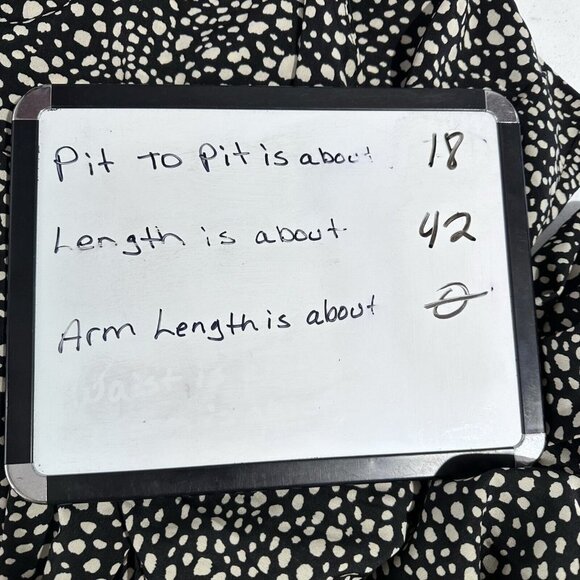 Pit To Pit is about 18
Length is about 42
Arm Length is about 0
Waist is